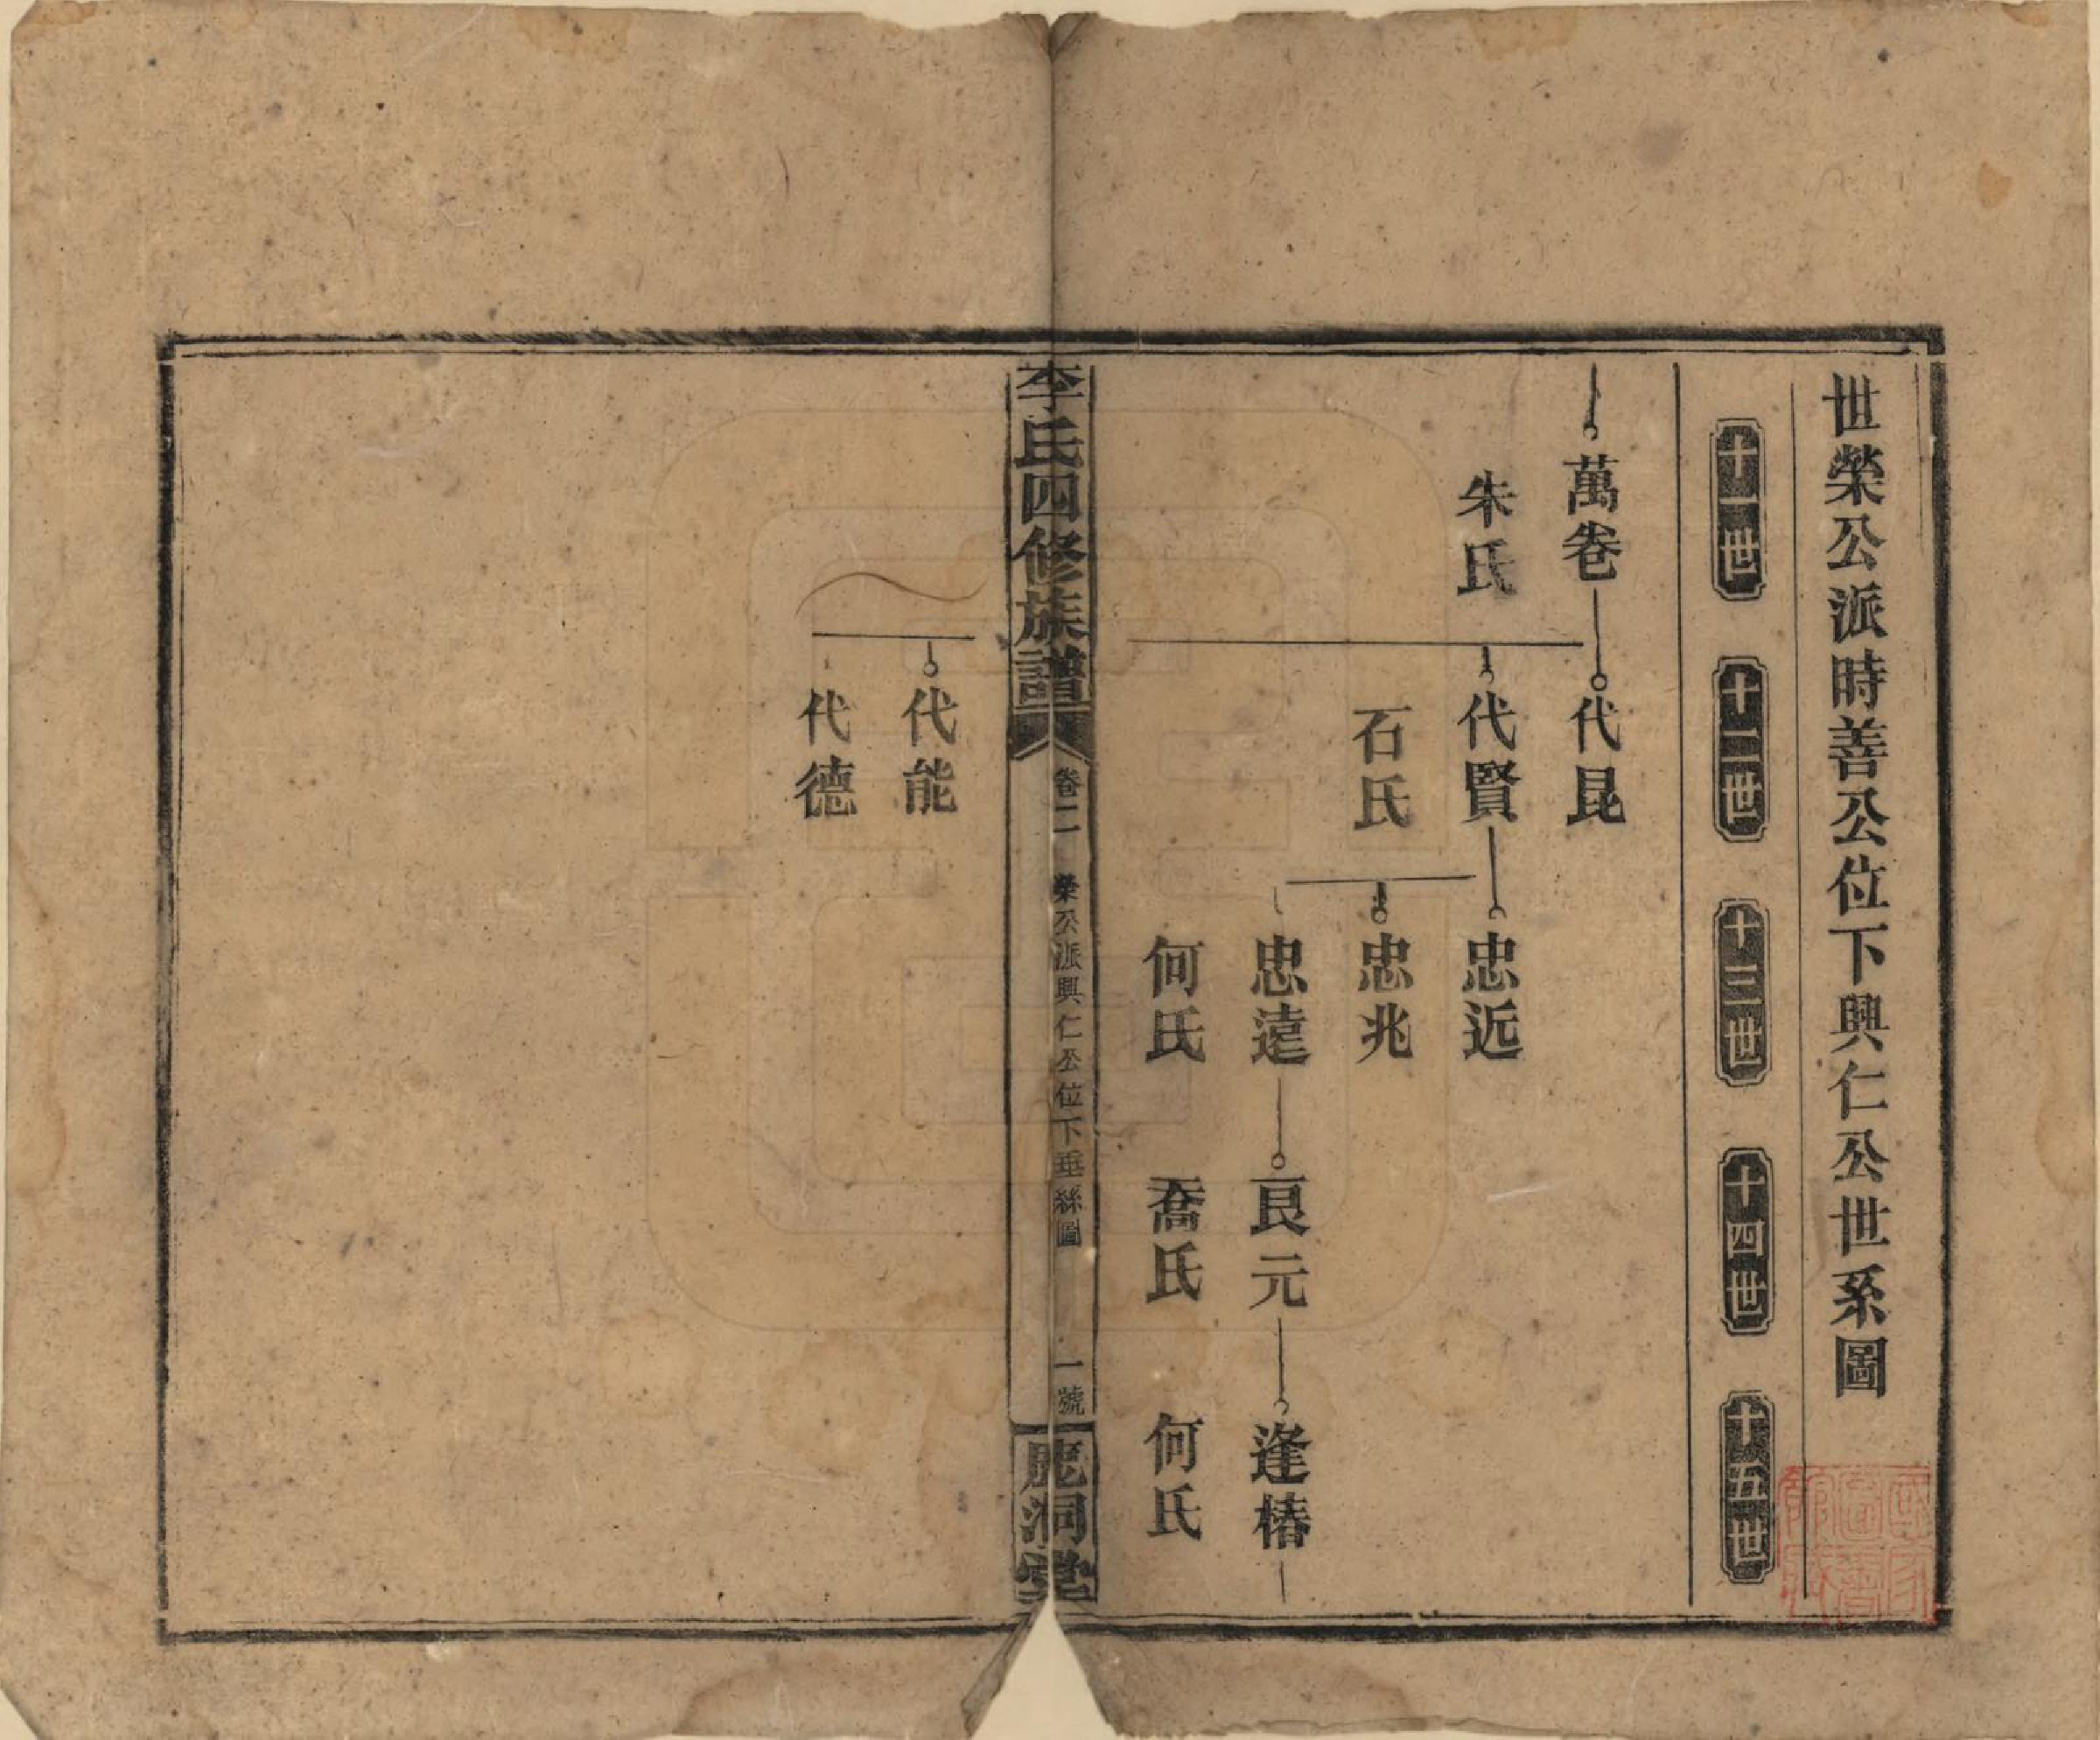 世榮公派時善公位下興仁公世系圖
十一世
十二世
十三世
十四世
十五世
萬卷
代昆
朱氏
代賢
忠近
石氏
忠兆
忠遠
良元
逢椿
何氏
喬氏
何氏
李氏四修族譜
卷二
榮公派興仁公位下垂絲圖
一號
鹿洞堂
代能
代德